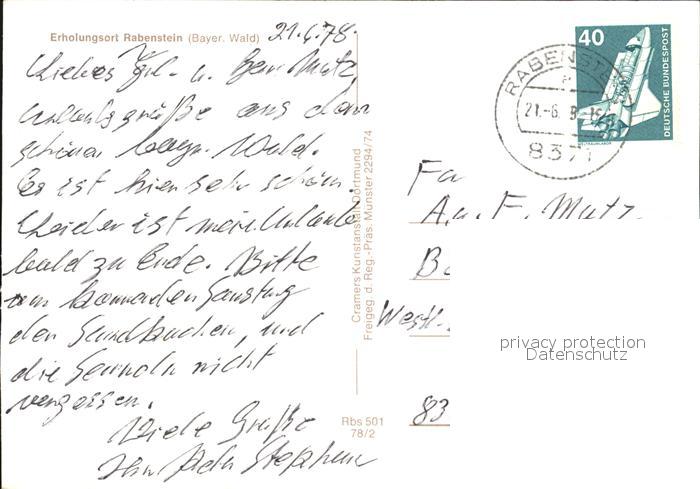 Erholungsort Rabenstein (Bayer. Wald) 21.6.78.
Liebes Frl. u. Herr Mutz,
Urlaubsgrüße aus dem
schönen bayr. Wald.
Es ist hier sehr schön.
Leider ist mein Urlaub
bald zu Ende. Bitte
am kommenden Samstag
den Sandkuchen, und
die Semmeln nicht
vergessen.
Viele Grüße
Ihr Stephan
Cramers Kunstanstalt Dortmund
Freigeg. d. Reg.-Präs. Münster 2294/74
Rbs 501
78/2
40
DEUTSCHE BUNDESPOST
WELTRAUMLABOR
RABENST
21.-6.
8371
Fa
A. u. F. Mutz
Westf.
83
privacy protection
Datenschutz